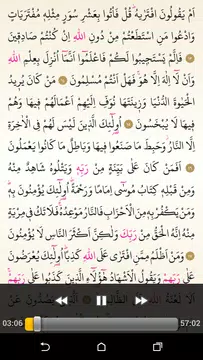 اَمْ يَقُولُونَ افْتَرٰيهُ قُلْ فَأْتُوا بِعَشْرِ سُوَرٍ مِثْلِه۪ مُفْتَرَيَاتٍ
وَادْعُوا مَنِ اسْتَطَعْتُمْ مِنْ دُونِ اللّٰهِ اِنْ كُنْتُمْ صَادِق۪ينَ
فَاِلَّمْ يَسْتَج۪يبُوا لَكُمْ فَاعْلَمُٓوا اَنَّمَٓا اُنْزِلَ بِعِلْمِ اللّٰهِ
وَاَنْ لَٓا اِلٰهَ اِلَّا هُوَ فَهَلْ اَنْتُمْ مُسْلِمُونَ مَنْ كَانَ يُر۪يدُ
الْحَيٰوةَ الدُّنْيَا وَز۪ينَتَهَا نُوَفِّ اِلَيْهِمْ اَعْمَالَهُمْ ف۪يهَا وَهُمْ
ف۪يهَا لَا يُبْخَسُونَ اُو۬لٰٓئِكَ الَّذ۪ينَ لَيْسَ لَهُمْ فِي الْاٰخِرَةِ
اِلَّا النَّارُ وَحَبِطَ مَا صَنَعُوا ف۪يهَا وَبَاطِلٌ مَا كَانُوا يَعْمَلُونَ
اَفَمَنْ كَانَ عَلٰى بَيِّنَةٍ مِنْ رَبِّه۪ وَيَتْلُوهُ شَاهِدٌ مِنْهُ
وَمِنْ قَبْلِه۪ كِتَابُ مُوسٰٓى اِمَامًا وَرَحْمَةً اُو۬لٰٓئِكَ يُؤْمِنُونَ بِه۪
وَمَنْ يَكْفُرْ بِه۪ مِنَ الْاَحْزَابِ فَالنَّارُ مَوْعِدُهُ فَلَا تَكُ ف۪ي مِرْيَةٍ
مِنْهُ اِنَّهُ الْحَقُّ مِنْ رَبِّكَ وَلٰكِنَّ اَكْثَرَ النَّاسِ لَا يُؤْمِنُونَ
وَمَنْ اَظْلَمُ مِمَّنِ افْتَرٰى عَلَى اللّٰهِ كَذِبًا اُو۬لٰٓئِكَ يُعْرَضُونَ
عَلٰى رَبِّهِمْ وَيَقُولُ الْاَشْهَادُ هٰٓؤُ۬لَٓاءِ الَّذ۪ينَ كَذَبُوا عَلٰى
رَبِّهِمْ اَلَا لَعْنَةُ اللّٰهِ عَلَى الظَّالِم۪ينَ اَلَّذ۪ينَ يَصُدُّونَ عَنْ
03:06
57:02